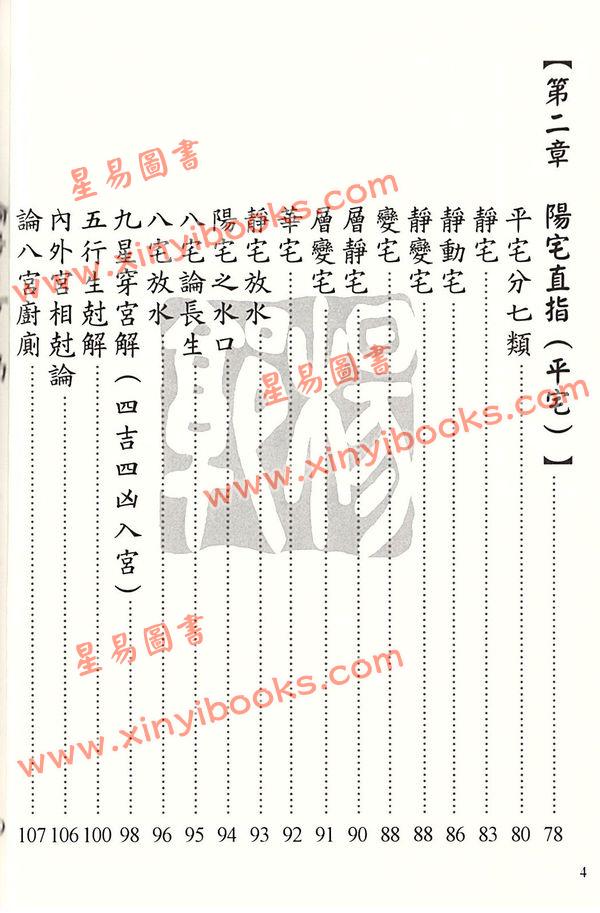 【第二章　陽宅直指（平宅）】……78
平宅分七類……80
靜宅……83
靜動宅……86
靜變宅……88
變宅……88
層靜宅……90
層變宅……91
華宅……92
靜宅放水……93
陽宅之水口……94
八宅論長生……95
八宅放水……96
九星穿宮解（四吉四凶入宮）……98
五行生尅解……100
內外宮相尅論……106
論八宮廚廁……107
4
星易圖書
www.xinyibooks.com
星易圖書
www.xinyibooks.com
星易圖書
www.xinyibooks.com